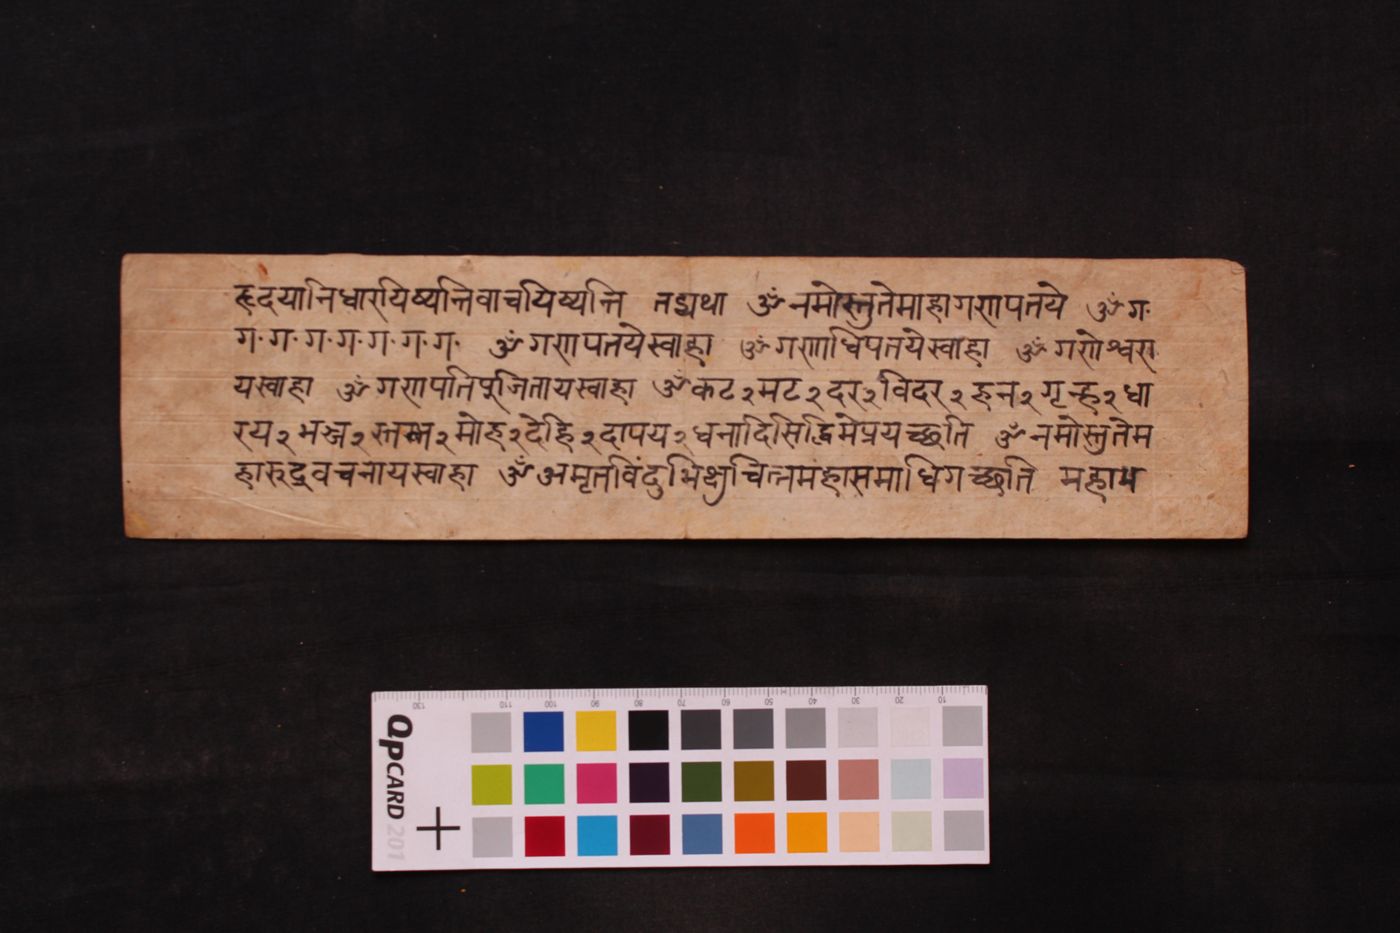 हृदयानिधारयिष्यन्तिवाचयिष्यन्ति तद्यथा ॐ नमोस्तुतेमाहागणपतये ॐ ग॰
ग॰ ग॰ ग॰ ग॰ ग॰ ग॰ ग॰ ॐ गणपतयेस्वाहा ॐ गणाधिपतयेस्वाहा ॐ गणेश्वरा
यस्वाहा ॐ गणपतिपुजितायस्वाहा ॐ कट२मट२दर२विदर२हन२गृन्ह२धा
रय२भञ्ज२स्तम्भ२मोह२देहि२दापय२धनादिसिद्धिमेप्रयच्छति ॐ नमोस्तुतेम
हारुद्रवचनायस्वाहा ॐ अमृतविंदु
QPCARD 201
130 110 100 90 80 70 60 50 40 30 20 10